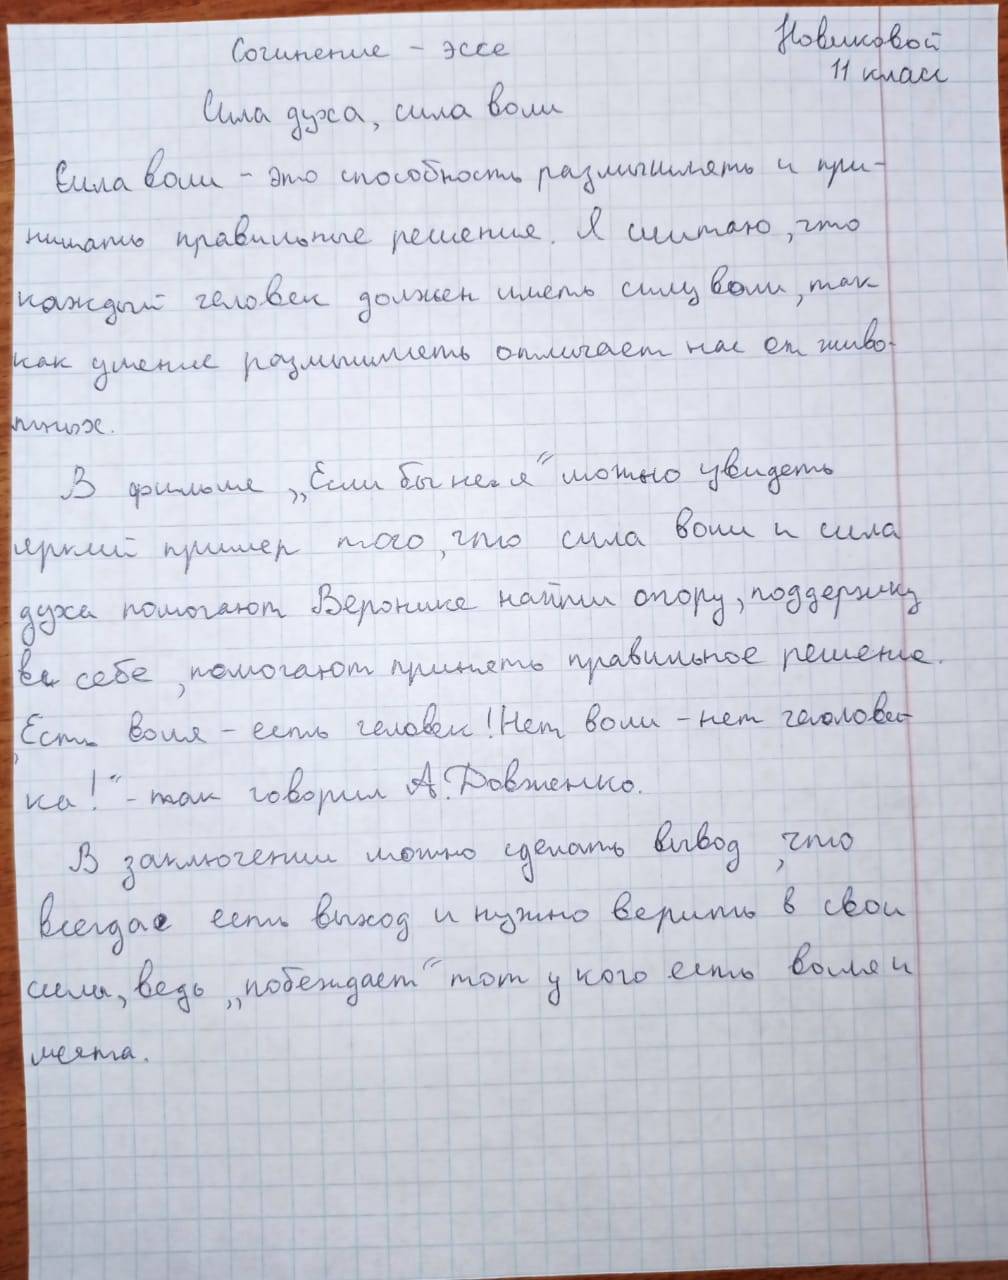 Сочинение - эссе
Новиковой
11 класс
Сила духа, сила воли
Сила воли - это способность размышлять и при-
нимать правильные решения. Я считаю, что
каждый человек должен иметь силу воли, так
как умение размышлять отличает нас от живо-
тных.
В фильме „Если бы не я“ можно увидеть
яркий пример того, что сила воли и сила
духа помогают Веронике найти опору, поддержку
в себе, помогают принять правильное решение.
„Есть воля - есть человек! Нет воли - нет человеч-
ка!“ - так говорил А. Довженко.
В заключении можно сделать вывод, что
всегда есть выход и нужно верить в свои
силы, ведь „побеждает“ тот у кого есть воля и
мечта.